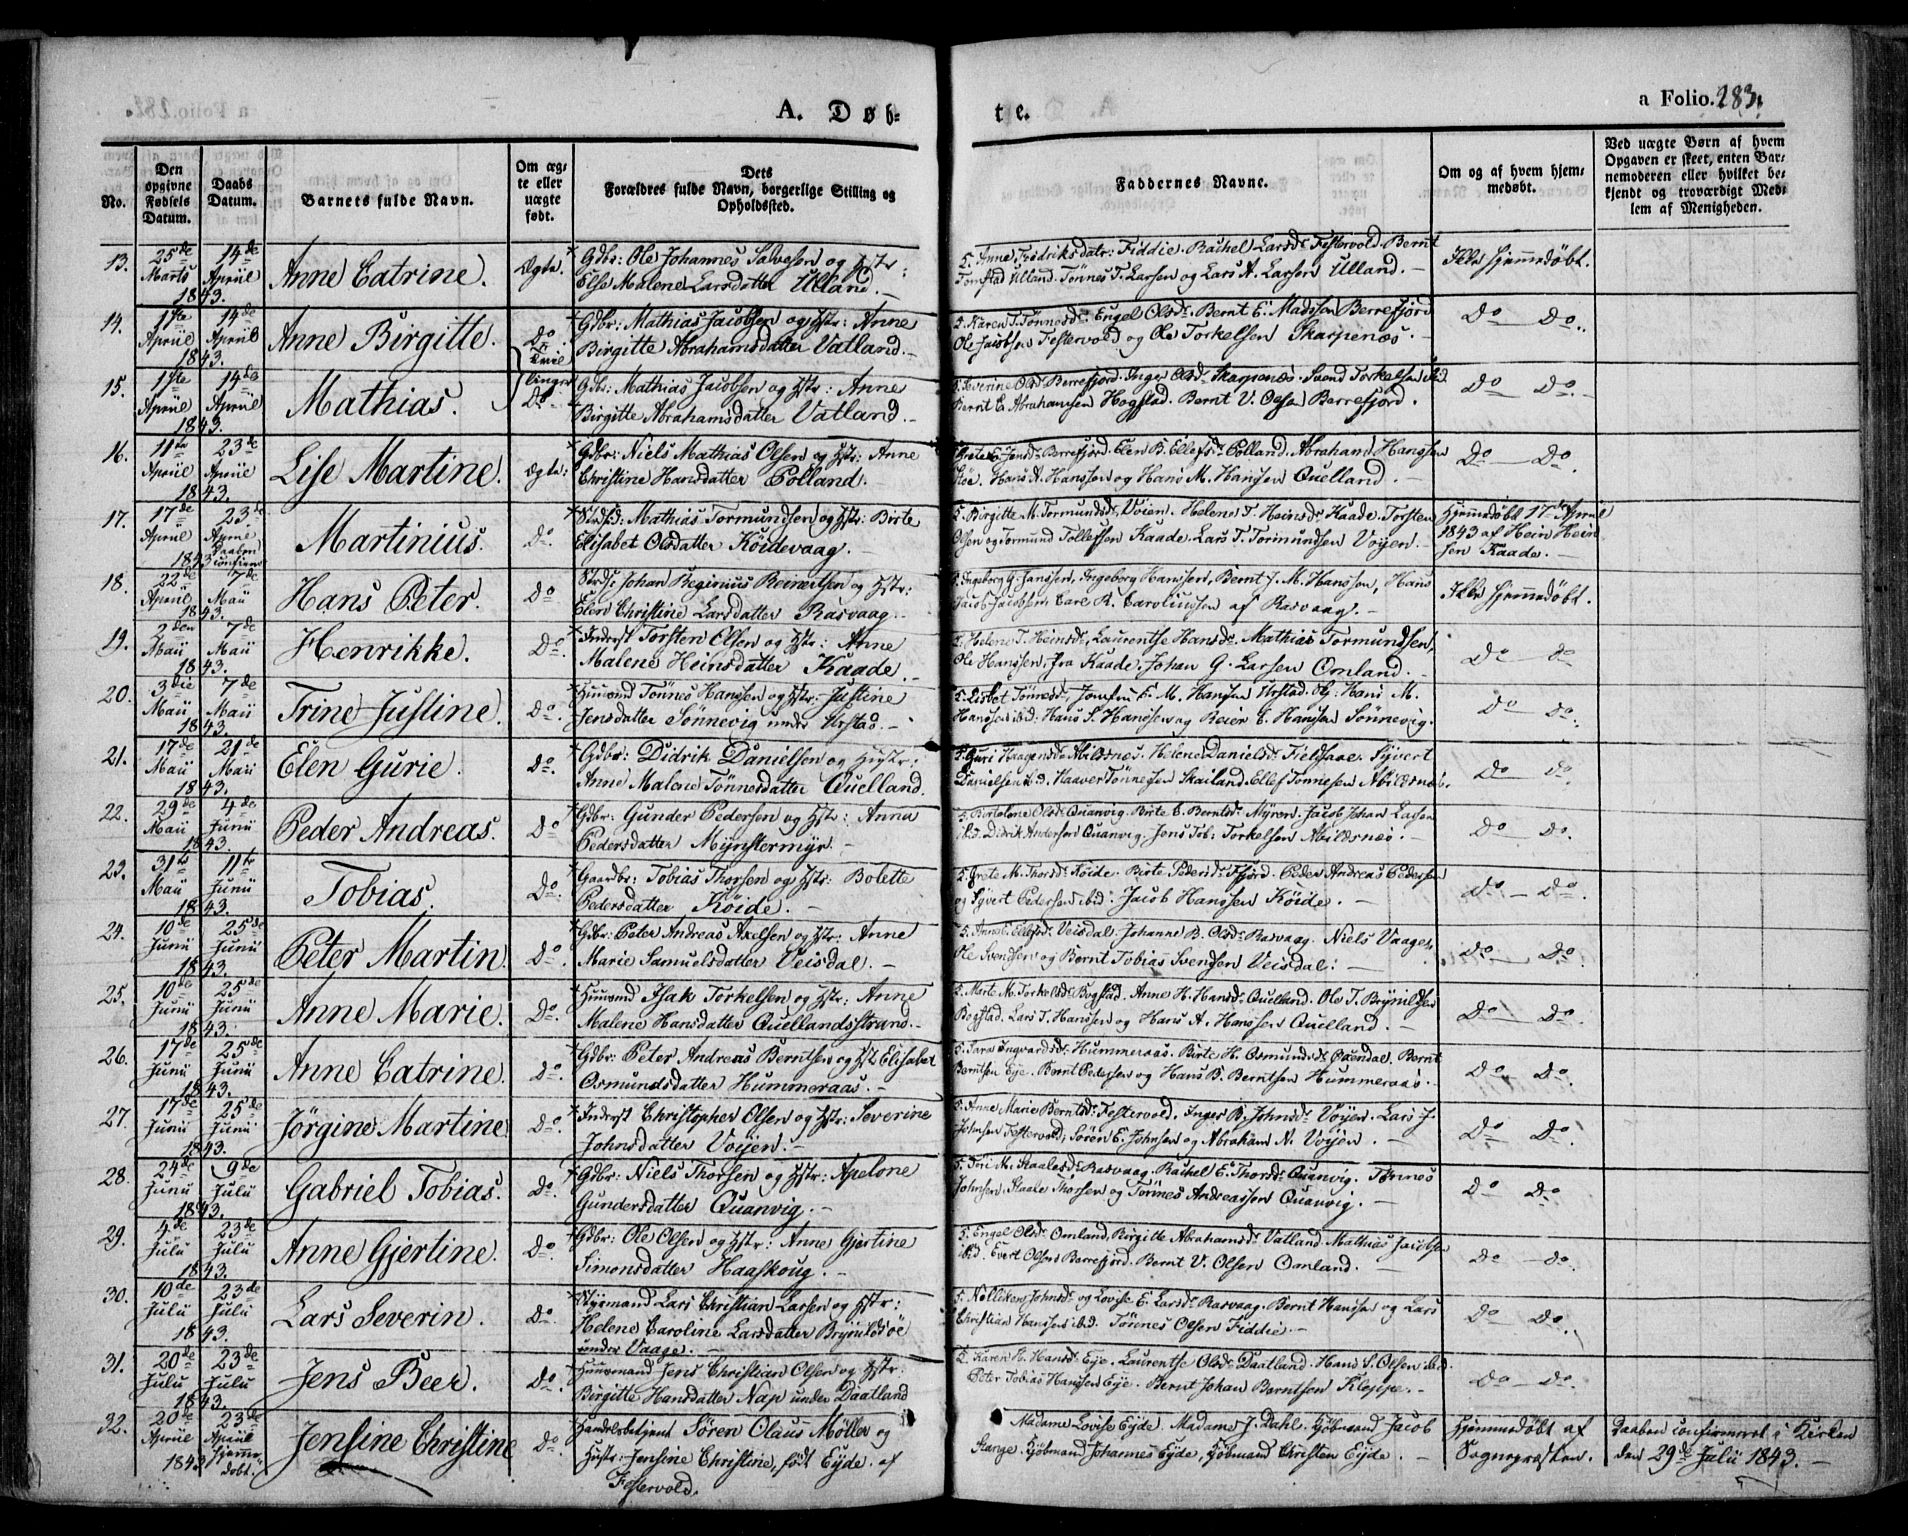 A. Døb-
te.
a Folio. 283.
No.
Den opgivne Fødsels Datum.
Daabs Datum.
Barnets fulde Navn.
Om ægte eller uægte født.
Dets Forældres fulde Navn, borgerlige Stilling og Opholdssted.
Faddernes Navne.
Om og af hvem hjemmedøbt.
Ved uægte Børn af hvem Opgaven er skeet, enten Barnemoderen eller hvilket bekjendt og troværdigt Medlem af Menigheden.
13. 25de Marts 14de April 1843. Anne Catrine. Ægte. Gdbr: Ole Johannes Salvesen og Hstr:
Else Malene Larsdatter Ulland.
5. Anne Fredriksdatr: Fiddie. Rachel Larsdr Festervold. Bernt
Tomstad Ulland. Tønnes T. Larsen og Lars A. Larsen Ulland. Ikke hjemmedøbt.
14. 1ste Apriil 14de Apriil 1843. Anne Birgitte. Do Tvillinger Gdbr: Mathias Jacobsen og Hstr: Anne
Birgitte Abrahamsdatter Vatland.
5. Karen T. Tønnesdr. Engel Olsdr. Bernt E. Madssen Berrefjord
Ole Jacobsen Festervold og Ole Torkelsen Skarpenæs. Do Do.
15. 1ste Apriil 14de Apriil 1843. Mathias. Do Gdbr: Mathias Jacobsen og Hstr: Anne
Birgitte Abrahamsdatter Vatland.
5. Severine Olsdr Berrefjord. Inger Olsdr Skarpenæs. Svend Torkelsen ibid.
Bernt E. Abrahamsen Hogstad. Bernt V. Olsen Berrefjord. Do Do.
16. 11te Apriil 23de Apriil 1843. Lise Martine. Ægte: Gdbr: Niels Mathias Olsen og Hstr: Anne
Christine Hansdatter Polland.
Berrefjord. Elen B. Ellefsdr Polland. Abraham Hanssen
Hans A. Hanssen og Hans M. Hansen Quelland. Do Do.
17. 17de Apriil 23de Apriil Daaben confirm: 1843 Martinius. Do. Strdsd: Mathias Tormundsen og Hstr: Birte
Elisabet Olsdatter Köidevaag.
5. Birgitte M. Tormundsdr Voien. Helene T. Heinsdr Kaade. Torsten
Olsen og Tormund Tollefsen Kaade. Lars T. Tormundsen Voyen. Hjemmedøbt 17de Apriil
1843 af Hein Hein
sen Kaade.
18. 22de Apriil 7de Maii 1843. Hans Peter. Do Strdsd: Johan Reginius Beinertsen og Hstr:
Elen Christine Larsdatter Rasvaag.
5. Ingeborg G. Janssen, Ingeborg Hanssen, Bernt J. M. Hanssen, Hans
Jacob Jacobsen, Carl R. Carolinssen af Rasvaag. Ikke hjemmedøbt.
19. 2den Maii 7de Maii 1843. Henrikke. Do. Inderst Torsten Olsen og Hstr: Anne
Malene Heinsdatter Kaade.
5. Helene T. Heinsdr, Laurentse Hansdr. Mathias Tormundsen,
Ole Hanssen, fra Kaade. Johan G. Larsen Omland. Do Do
20. 3die Maii 7de Maii 1843. Trine Justine. Do. Huusmd Tönnes Hanssen og Hstr: Justine
Jensdatter Sönnevig under Urstad.
5. Lisbet Tönnesdr, E. M. Hansen Urstad. Hans M.
Hanssen ibid: Hans S. Hanssen og Reier E. Hanssen Sönnevig. Do Do.
21. 17de Maii 21de Maii 1843. Elen Gurie. Do. Gdbr: Didrik Danielsen og Hustr:
Anne Malene Tönnesdatter Quelland.
5. Guri Haagensdr Abildsnes. Helene Danielsdr Fieldsaae. Syvert
Danielsen ibid. Haaver Tönnesen Skailand. Ellef Tönnesen Abildsnes. Do Do.
22. 29de Maii 4de Junii 1843. Peder Andreas. Do Gdbr: Gunder Pedersen og Hstr: Anna
Pedersdatter Mynstermyr.
5. Bertoline Olsdr Quanvig. Birte E. Berntsdr Myren. Jacob Johan Larsen
ibid. Didrik Andersen Quanvig. Jens Tob: Torkelsen Abildsnæs. Do Do.
23. 31te Maii 11te Junii 1843. Tobias. Do. Gaardbr: Tobias Thorsen og Hstr: Bolette
Pedersdatter Köide.
5. Grete M. Thorsdr Köide. Birte Pedersdr Fjord. Peder Andreas Pedersen
og Syvert Pedersen ibid: Jacob Hanssen Köide. Do Do.
24. 10de Junii 25de Junii 1843. Peter Martin. Do. Gdbr: Peter Andreas Axelsen og Hstr: Anne
Marie Samuelsdatter Veisdal.
5. Anne E. Ellefsdr Veisdal. Johanne B. Olsdr Rasvaag. Niels Vaage,
Ole Svendsen og Bernt Tobias Svendsen Veisdal. Do Do.
25. 10de Junii 25de Junii 1843. Anne Marie. Do. Huusmd Isak Torkelsen og Hstr: Anne
Malene Hansdatter Quellandsstrand.
5. Marte M. Torkelsdr Bogstad. Anne H. Hansdr Quelland. Ole T. Brynildsen
Bogstad. Lars T. Hanssen og Hans A. Hanssen Quelland. Do Do.
26. 17de Junii 25de Junii 1843. Anne Catrine. Do. Gdbr: Peter Andreas Berntsen og Hstr Elisabet
Osmundsdatter Hummeraas.
5. Sara Ingvardsdr: Hummeraas. Birte H. Osmundsdr Quendal. Bernt
Berntsen Eye. Bernt Pedersen og Hans B. Berntsen Hummeraas. Do Do.
27. 17de Junii 25de Junii 1843. Jörgine Martine. Do. Inderst Christopher Olsen og Hstr: Severine
Johnsdatter Voijen.
5. Anne Marie Berntsdr: Festervold. Inger B. Johnsdr Voyen. Lars J.
Johnsen Festervold, Sören E. Johnsen og Abraham N. Voijen. Do Do.
28. 24de Junii 9de Julii 1843. Gabriel Tobias. Do. Gdbr: Niels Thorsen og Hstr: Axelone
Gundersdatter Quanvig.
5. Siri M. Staalesdr Rasvaag. Rachel E. Thorsdr Quanvig. Tønnes
Johnsen. Staale Thorsen og Tönnes Andreassen Quanvig. Do Do.
29. 4de Julii 23de Julii 1843. Anne Gjertine. Do. Gdbr: Ole Olsen og Hstr: Anne Gjertine
Simonsdatter Haaskoug.
5. Engel Olsdr Omland. Birgitte Abrahamsdr Vatland. Mathias Jacobsen
ibid. Evert Olsen Berrefjord. Bernt V. Olsen Omland. Do Do.
30. 10de Julii 23de Julii 1843. Lars Severin. Do. Styrmand Lars Christian Larsen og Hstr:
Helene Caroline Larsdatter Brynildsöe
under Vaage.
5. Nelliken Johnsdr og Lovise E. Larsdr Rasvaag. Bernt Hanssen og Lars
Christian Hanssen ibid. Tönnes Olsen Fiddie. Do Do.
31. 20de Julii 23de Julii 1843. Jens Beer. Do. Huusmand Jens Christian Olsen og Hstr:
Birgitte Hansdatter Nap under Daatland
5. Karen H. Hansdr Eye. Laurentse Olsdr Daatland. Hans S. Olsen ibid.
Peter Tobias Hanssen Eye. Bernt Johan Berntsen Kleppe. Do Do.
32. 20de Apriil 23de Apriil hjemmedöbt. 1843 Jensine Christine Do. Handelsbetjent Sören Olaus Möller og
Hustr: Jensine Christine, födt Eyde, af
Festervold.
Madame Lovise Eyde, Madame J. Dahl, Kjöbmand Jacob
Stange, Kjöbmand Johannes Eyde, Kjöbmand Christen Eyde. Hjemmedøbt af
Sognepræsten. Daaben confirmeret i Kirken
den 29de Julii 1843.